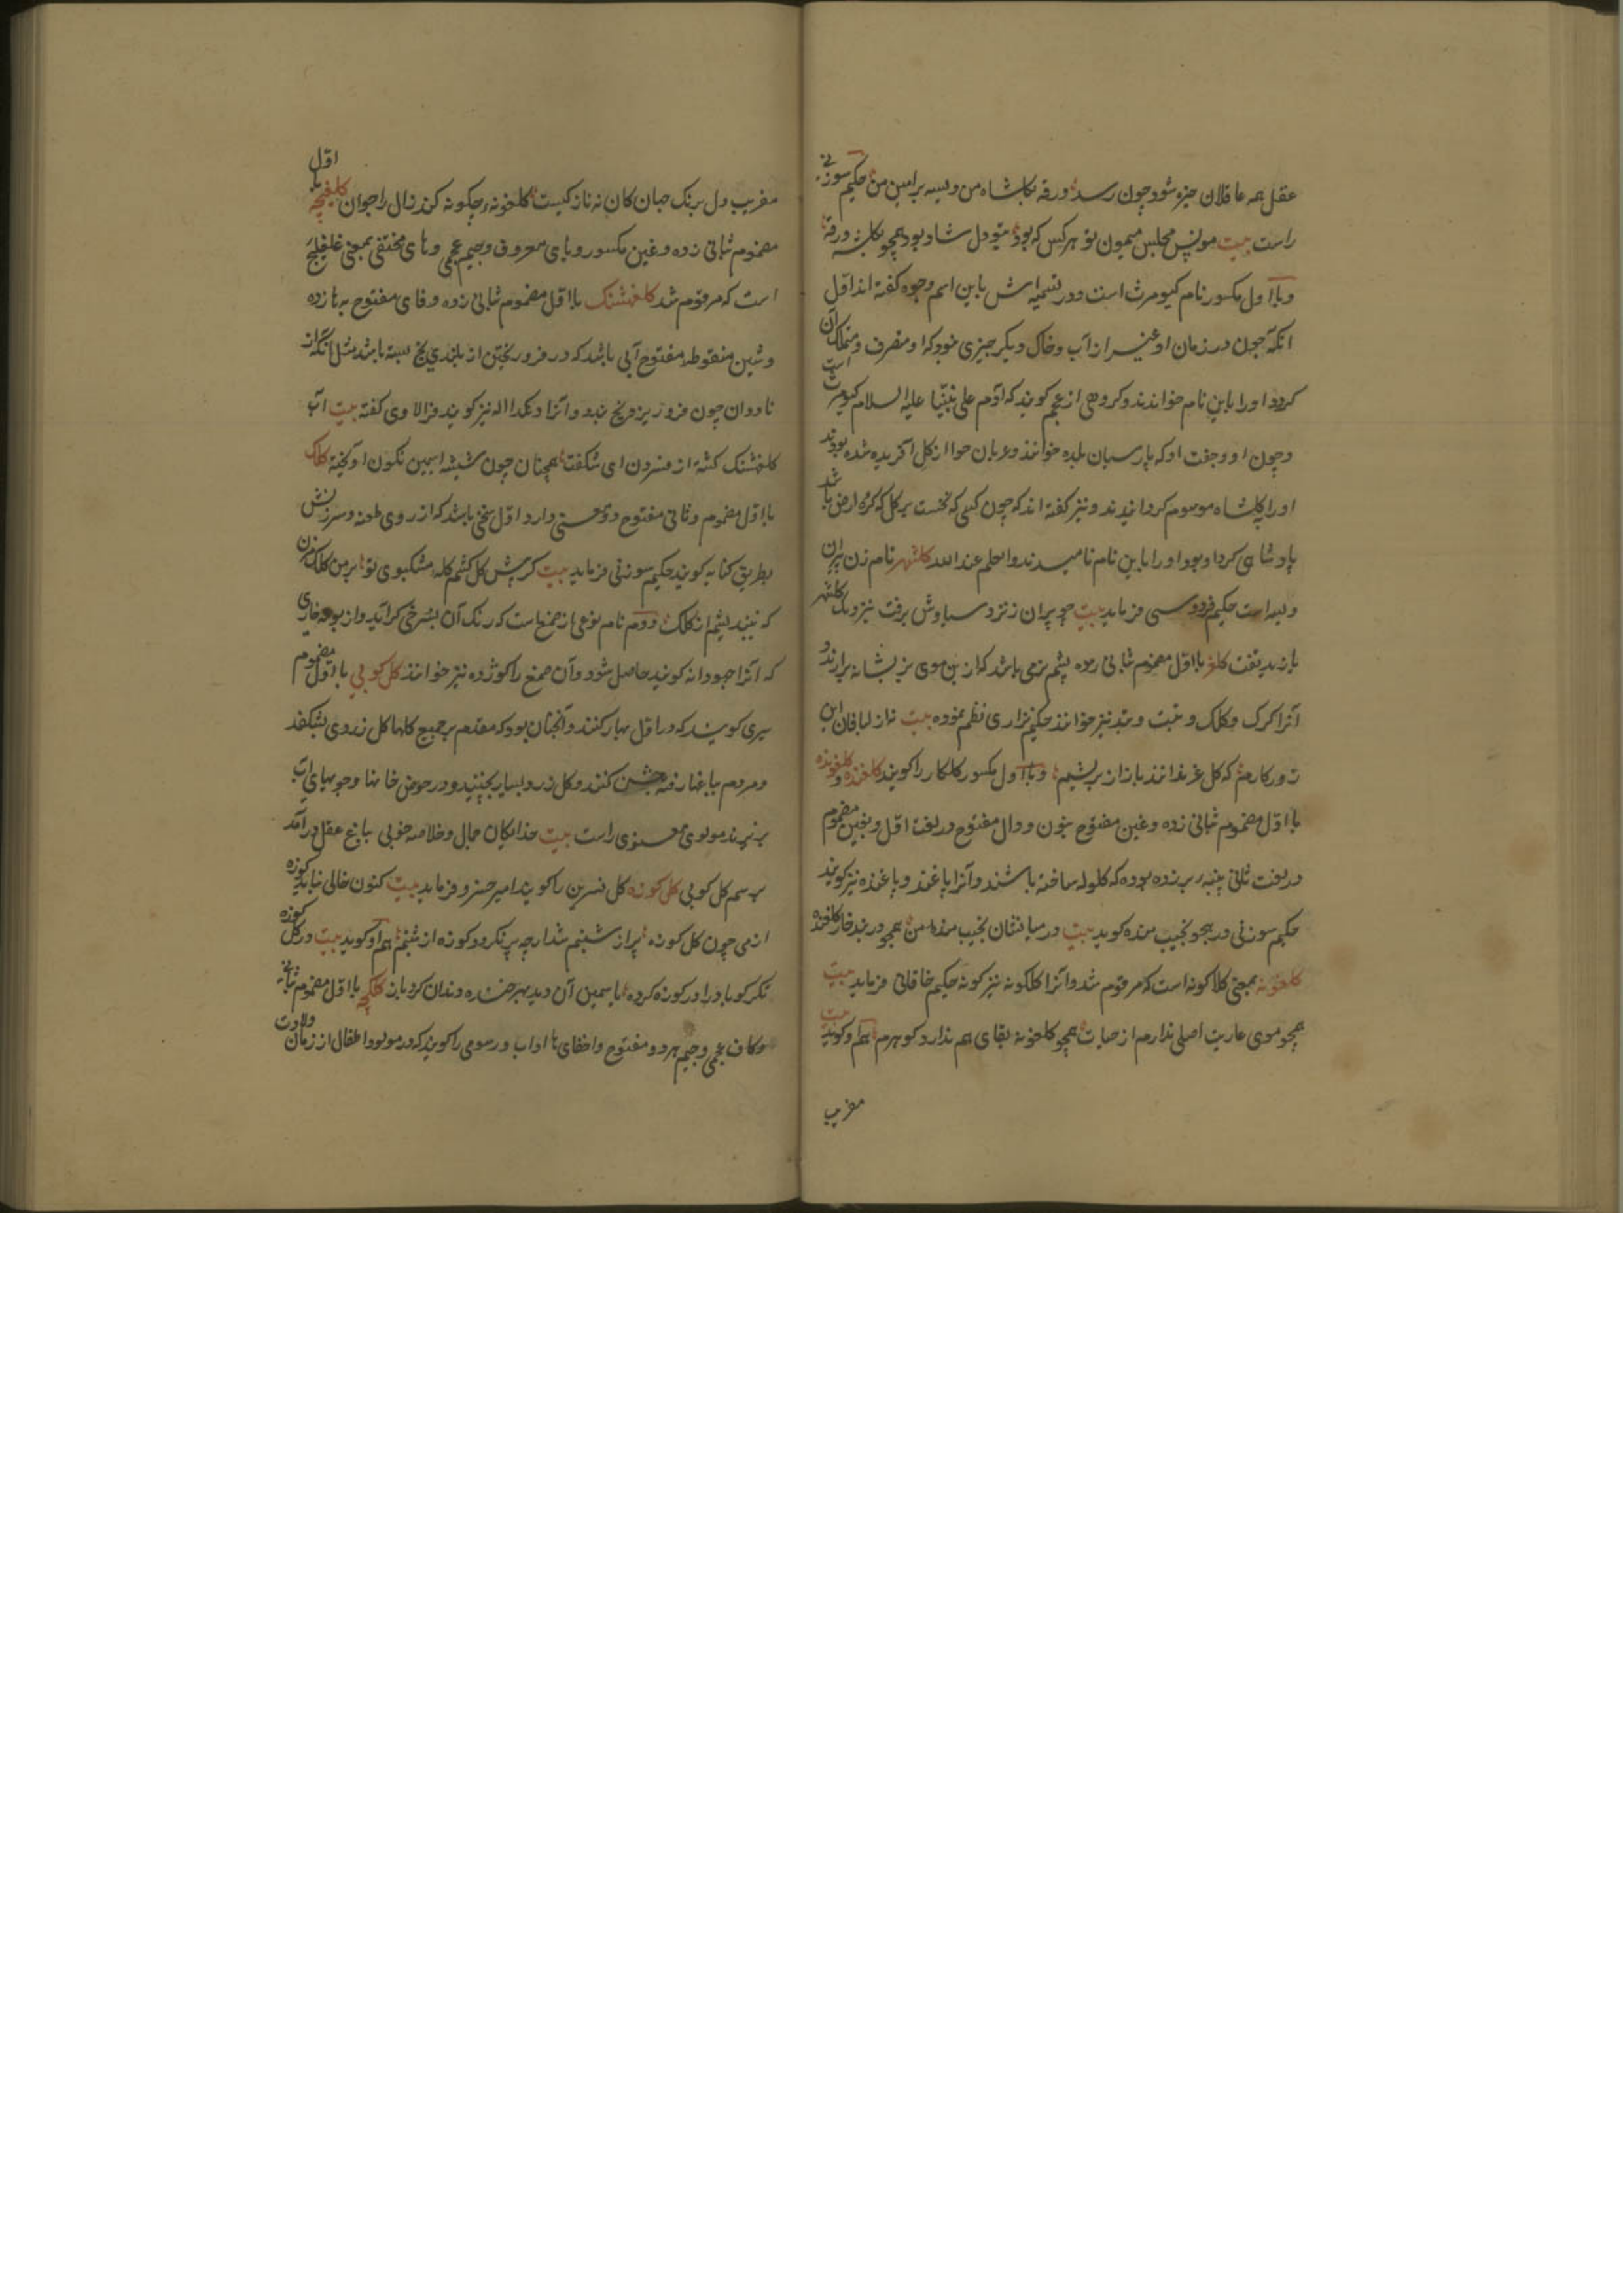 عقل همه عاقلان خیره شود چون رسد ورقه بگلشاه من ویسه برامین من حکیم سوزنی
راست بیت مونس مجلس میمون تو هر کس که بود بتو دل شاد بود همچو بگلشه ورقه
و با اول مکسور نام کیومرث است و در تسمیه اش باین اسم وجوه گفته اند اول
آنکه چون در زمان او غیر از آب و خاک دیگر چیزی نبود که او متصرف و متملک آن
کردد او را باین نام خواندند و کروهی از عجم کویند که آدم علی نبینا علیه السلام کیومرث است
و چون او و جفت او که پارسیان بلده خوانند و عربان حوا از کل آفریده شده بودند
او را کلشاه موسوم کردانیدند و نیز گفته اند که چون کسی که نخست بر کل که کره ارض باشد
پادشاهی کرد او بود او را باین نام نامیدند والعلم عند الله کلشهر نام زن پیران
ویسه است حکیم فردوسی فرماید بیت چو پیران ز نزد سیاوش برفت بنزدیک کلشهر
تازید تفت کلغر با اول مضموم بثانی زده پشم نرمی باشد که از بن موی بز بشانه برارند و
آنرا کرک و کلک و تبت و تبد نیز خوانند حکیم نزاری نظم نموده بیت نه از لبافان این
دورکارم که کلغر ندانند باز از بریشم و با اول مکسور کلکار را کویند کلغنده و کلغونده
با اول مضموم بثانی زده و غین مفتوح بنون و دال مفتوح در لغت اول و بغین مضموم
در لغت ثانی پنبه بر زده بوده که کلوله ساخته باشند و آنرا باغند و باغنده نیز کویند
حکیم سوزنی در هجو نجیب مرنده کوید بیت در میانشان نجیب مرنده من همچو در بند خار کلغنده
کلغونه بمعنی کلاکونه است که مرقوم شد و آنرا کلکونه نیز کونه حکیم خاقانی فرماید بیت
همچو موی عاریت اصلی ندارم از حیات همچو کلغونه بقای هم ندارد کوهرم هم او کوید بیت
مفریب
مفریب دل برنک جهان کان نه ناز کیست کلغونه چکونه کند زال را جوان کلفیچه با اول
مضموم بثانی زده و غین مکسور و یای معروف و جیم عجمی و های مختفی بمعنی غلغلیج
است که مرقوم شد کلفهشنک با اول مضموم بثانی زده و فای مفتوح به ها زده
و شین منقوطه مفتوح آبی باشد که در فرو ریختن از بلندی یخ بسته باشد مثل آنکه از
ناودان چون فرو ریزد یخ بندد و آنرا دنکداله نیز کویند فرالاوی گفته بیت آب
کلفهشنک کشته از فسردن ای شکفت همچنان چون شیشه سیمین نکون آویخته کلک
با اول مضموم و ثانی مفتوح دو معنی دارد اول سخنی باشد که از روی طعنه و سرزنش
بطریق کنایه کویند حکیم سوزنی فرماید بیت کر پیش کل کشم کله مشکبوی تو بر من کلک مزن
که نیندیشم از کلک دوم نام نوعی از صمغ است که رنک آن بسرخی کراید و از بوته خاری
که آنرا جهودانه کویند حاصل شود و آن صمغ را کوژده نیز خوانند کل کوبی با اول مضموم
سیری کویند که در اول بهار کنند و آنچنان بود که مقدم بر جمیع کلها کل زردی بشکفد
و مردم بباغها رفته جشن کنند و کل زرد بسیار بچینند و در حوض خانها و جویهای آب
بریزند مولوی معنوی راست بیت خدایکان جمال و خلاصه خوبی بباغ عقل درآمد
برسم کل کوبی کل کوزه کل نسرین را کویند امیر خسرو فرماید بیت کنون خالی نباید کوزه
از می چون کل کوزه پر از شبنم شد ارچه پر نکردد کوزه از شبنم هم او کوید بیت در کل کوزه
نکر کوباد را در کوزه کرده یاسمین آن دید بهر خنده دندان کرد باز کلکچه با اول مضموم بثانی
و کاف عجمی و جیم هر دو مفتوح و اخفای ها آداب و رسومی را کویند که در مولود اطفال از زمان ولادت